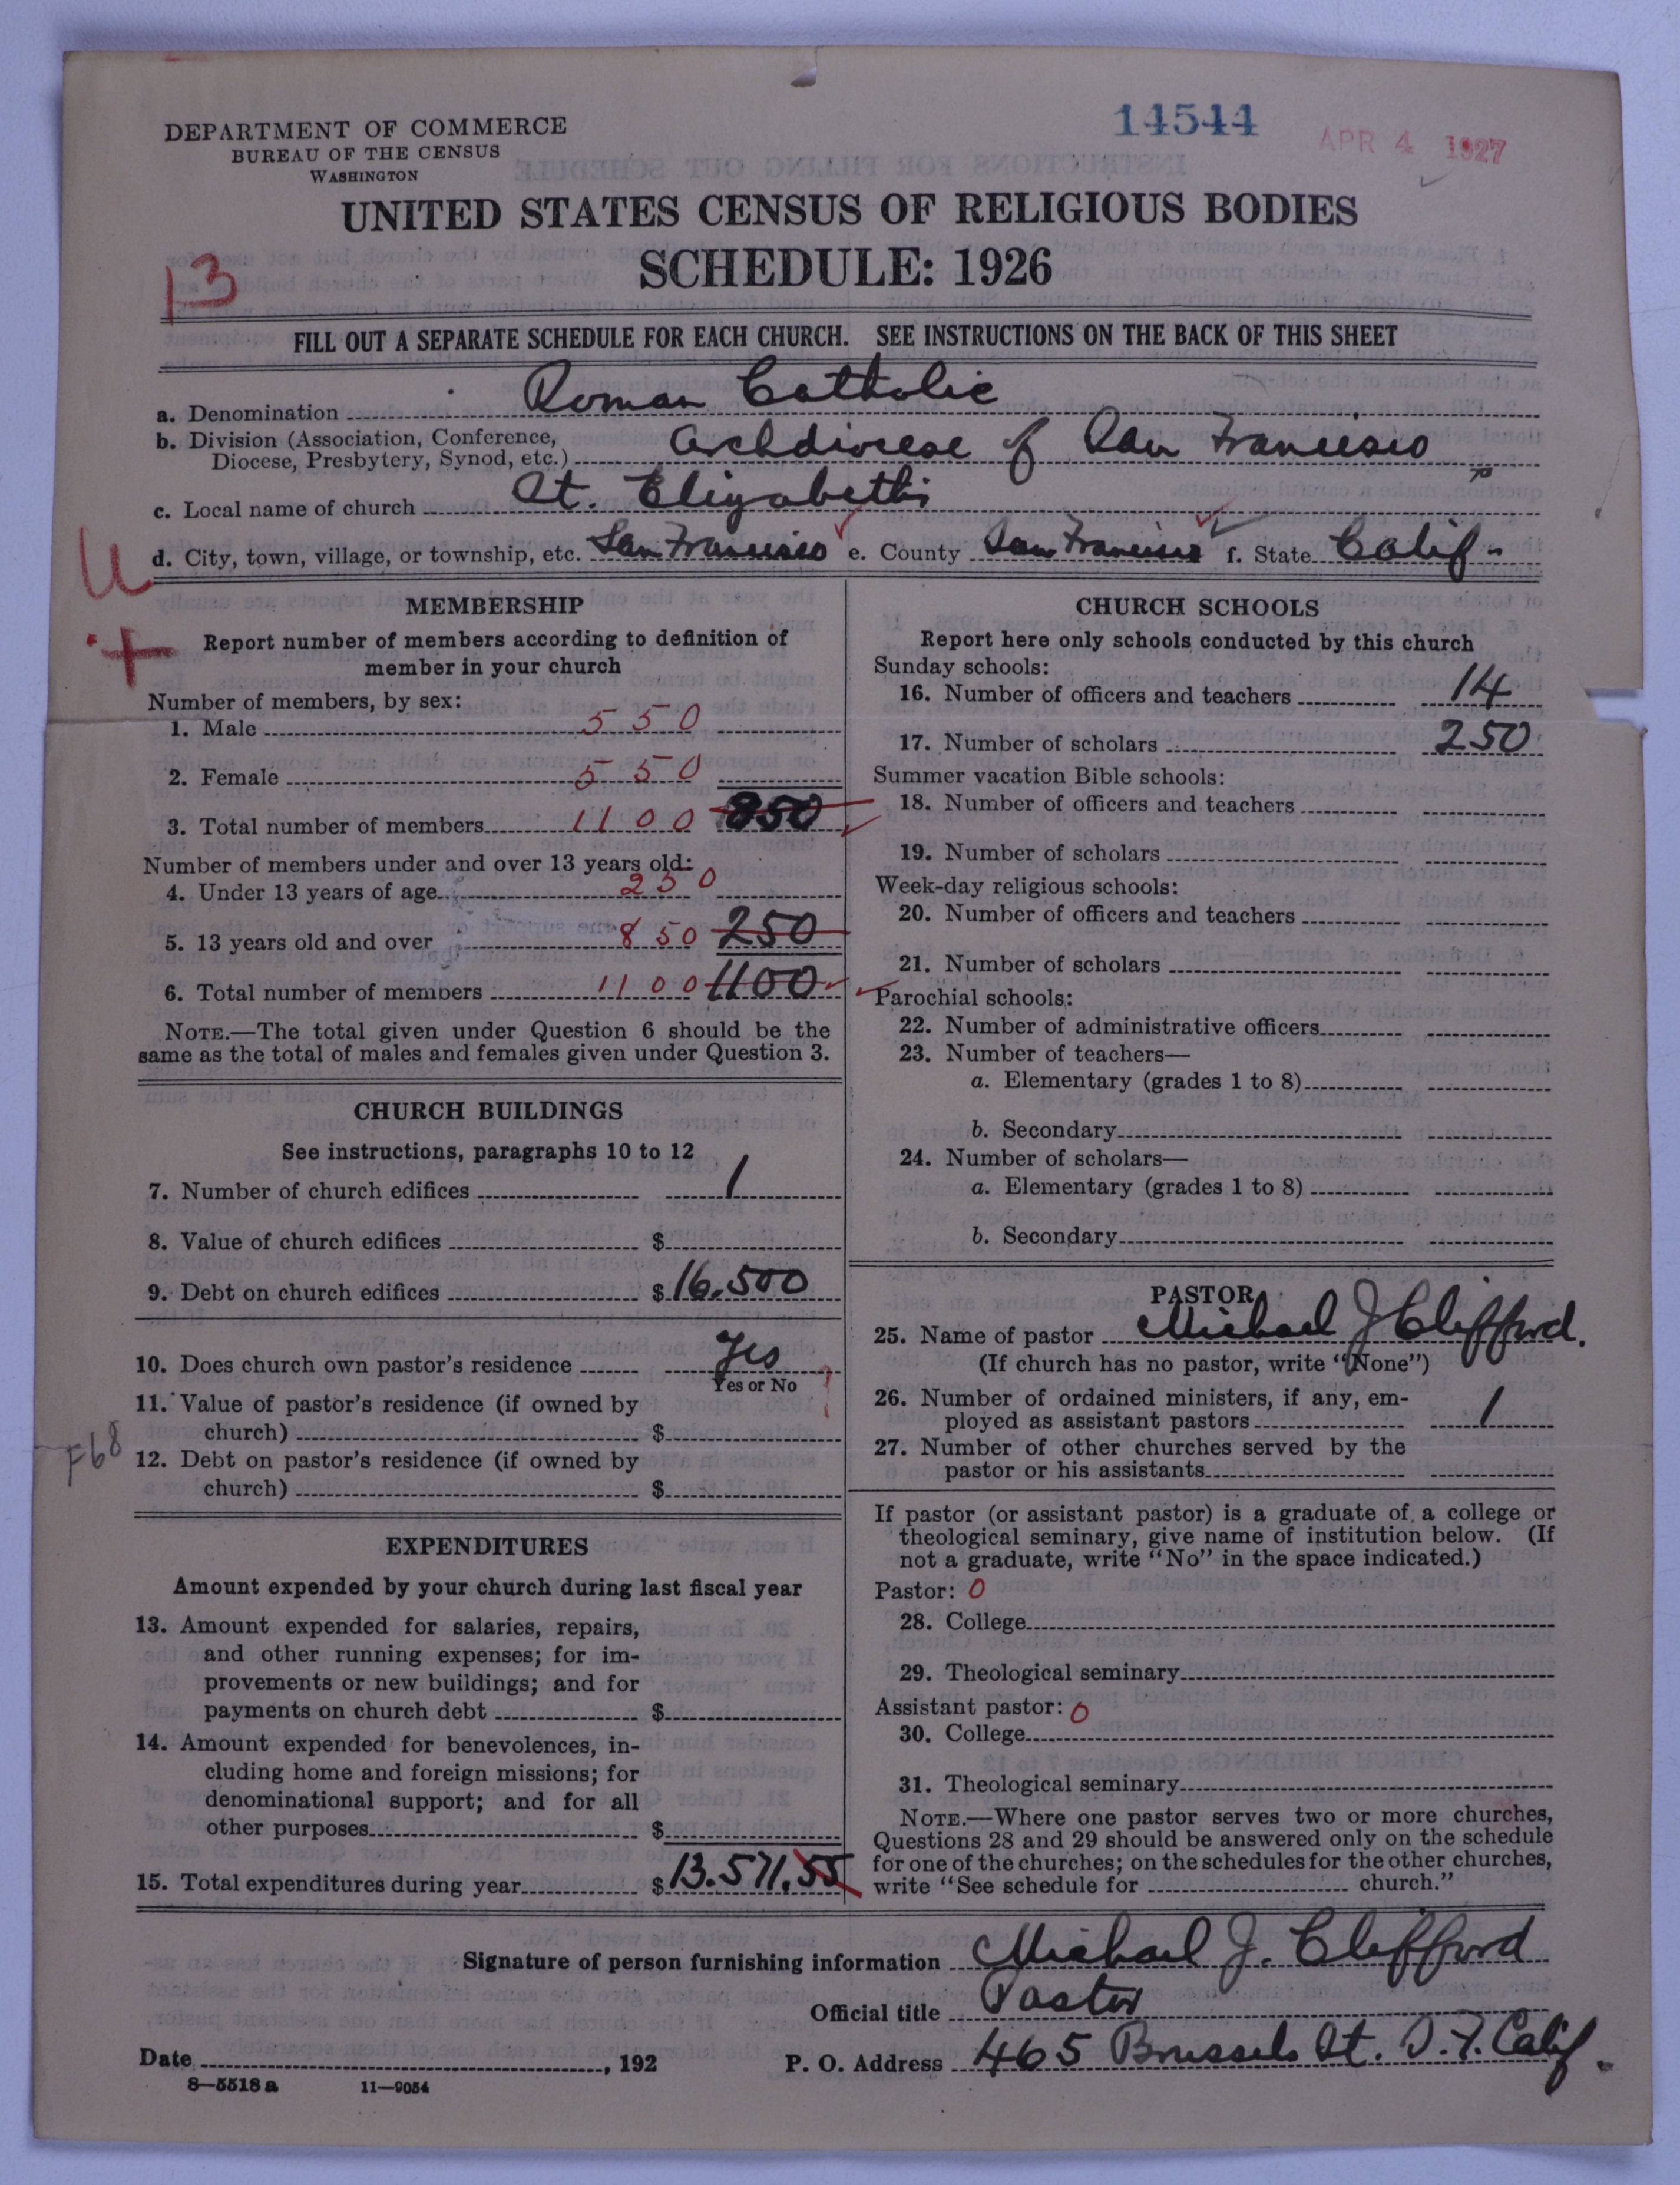 DEPARTMENT OF COMMERCE
BUREAU OF THE CENSUS
WASHINGTON
14544
APR 4 1927
UNITED STATES CENSUS OF RELIGIOUS BODIES
SCHEDULE: 1926
13
FILL OUT A SEPARATE SCHEDULE FOR EACH CHURCH. SEE INSTRUCTIONS ON THE BACK OF THIS SHEET
a. Denomination Roman Catholic
b. Division (Association, Conference,
Diocese, Presbytery, Synod, etc.) Archdiocese of San Francisco
c. Local name of church St. Elizabeth's
d. City, town, village, or township, etc. San Francisco e. County San Francisco f. State Calif-
U
+
MEMBERSHIP
Report number of members according to definition of
member in your church
Number of members, by sex:
1. Male 550
2. Female 550
3. Total number of members 1100 850
Number of members under and over 13 years old:
4. Under 13 years of age 250
5. 13 years old and over 850 250
6. Total number of members 1100 1100
NOTE.—The total given under Question 6 should be the
same as the total of males and females given under Question 3.
CHURCH BUILDINGS
See instructions, paragraphs 10 to 12
7. Number of church edifices 1
8. Value of church edifices $
9. Debt on church edifices $16,500
10. Does church own pastor's residence Yes
Yes or No
?
11. Value of pastor's residence (if owned by
church) $
F68
12. Debt on pastor's residence (if owned by
church) $
EXPENDITURES
Amount expended by your church during last fiscal year
13. Amount expended for salaries, repairs,
and other running expenses; for im-
provements or new buildings; and for
payments on church debt $
14. Amount expended for benevolences, in-
cluding home and foreign missions; for
denominational support; and for all
other purposes $
15. Total expenditures during year $13.571.55
CHURCH SCHOOLS
Report here only schools conducted by this church
Sunday schools:
16. Number of officers and teachers 14
17. Number of scholars 250
Summer vacation Bible schools:
18. Number of officers and teachers
19. Number of scholars
Week-day religious schools:
20. Number of officers and teachers
21. Number of scholars
Parochial schools:
22. Number of administrative officers
23. Number of teachers—
a. Elementary (grades 1 to 8)
b. Secondary
24. Number of scholars—
a. Elementary (grades 1 to 8)
b. Secondary
PASTOR
25. Name of pastor Michael J Clifford.
(If church has no pastor, write "None")
26. Number of ordained ministers, if any, em-
ployed as assistant pastors 1
27. Number of other churches served by the
pastor or his assistants
If pastor (or assistant pastor) is a graduate of a college or
theological seminary, give name of institution below. (If
not a graduate, write "No" in the space indicated.)
Pastor: 0
28. College
29. Theological seminary
Assistant pastor: 0
30. College
31. Theological seminary
NOTE.—Where one pastor serves two or more churches,
Questions 28 and 29 should be answered only on the schedule
for one of the churches; on the schedules for the other churches,
write "See schedule for church."
Signature of person furnishing information Michael J. Clifford
Official title Pastor
Date , 192 P. O. Address 465 Brussels St. S.F. Calif.
8—5518 a 11—9054